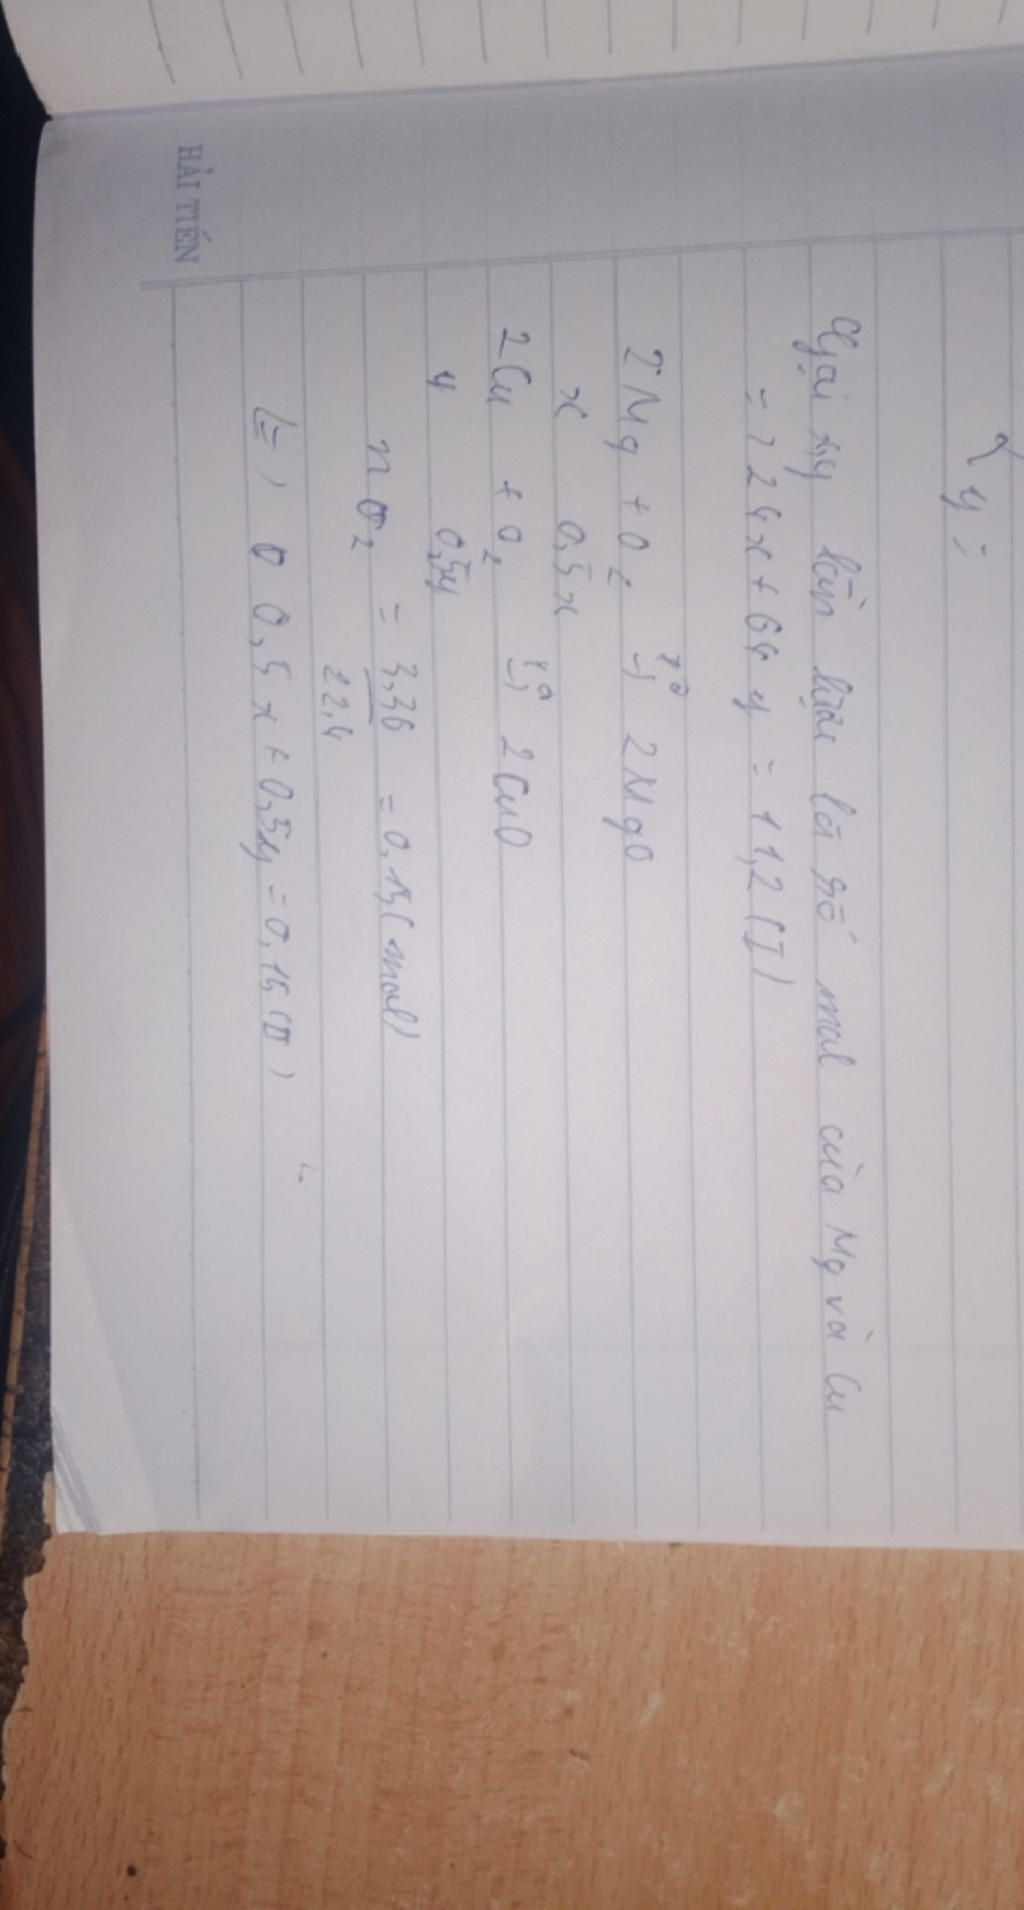 y =
Gọi x,y lần lượt là số mol của Mg và Cu
=> 24x + 64y = 11,2 (I)
2Mg + O2 t° → 2MgO
x 0,5x
2Cu + O2 t° → 2CuO
y 0,5y
nO2 = 3,36 / 22,4 = 0,15 (mol)
(=) 0,5x + 0,5y = 0,15 (II)
HẢI TIẾN